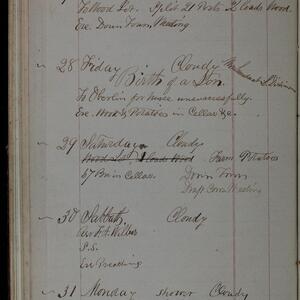 To Wood Lot. Split 21 Posts 2 loads Wood
Eve. Down Town Meeting
28 Friday Cloudy
Birth of a Son
To Oberlin for Music unsuccessfully.
Eve. Work & Potatoes in Cellar &c.
29 Saturday Cloudy
Wood Lot loads Wood Farm Potatoes
57 Bu in Cellar Down Town
Draft Com Meeting
30 Sabbath Cloudy
Rev F. A. Wilber
S.S.
Ev Preaching
31 Monday shower Cloudy